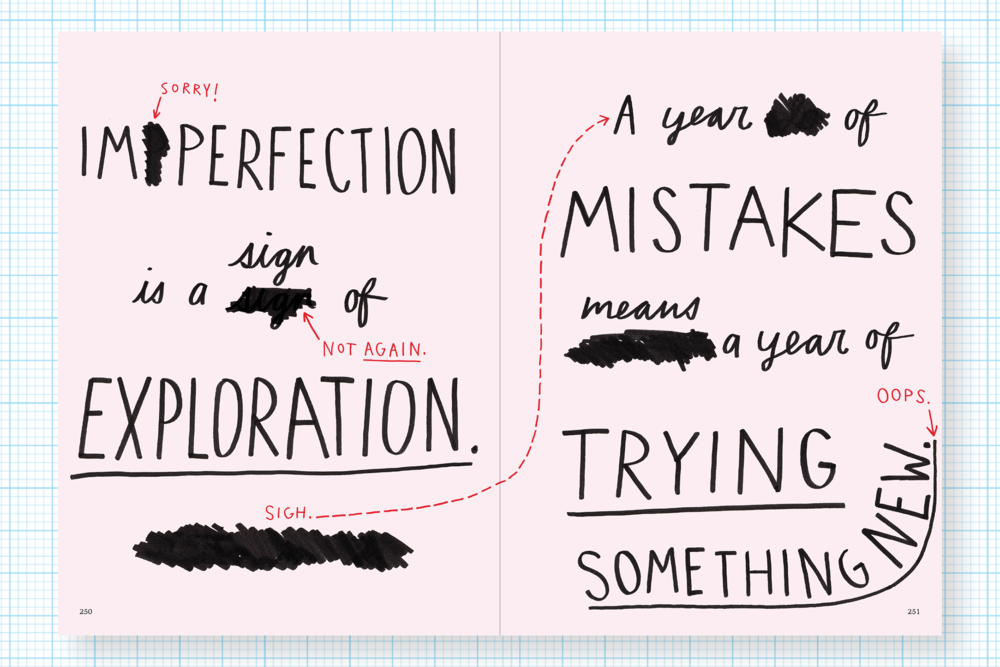 SORRY!
IMPERFECTION
sign
is a sign of
NOT AGAIN.
EXPLORATION.
SIGH.
250
A year of
MISTAKES
means
a year of
OOPS.
TRYING
SOMETHING NEW.
251